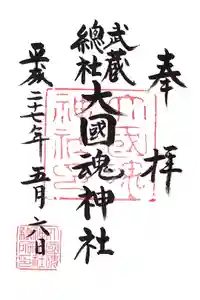 奉拝
武蔵
總社
大國魂神社
平成二十七年五月六日